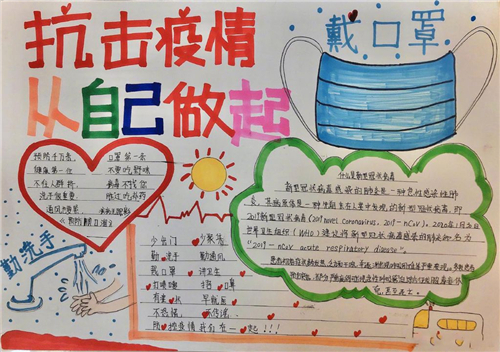 抗击疫情
从自己做起
戴口罩
勤洗手
预防千万条，
口罩第一条
健康第一位
不要吃野味
不往人群挤，
病毒不找你
洗手很重要，
什么是新型冠状病毒
新型冠状病毒感染的肺炎是一种急性感染性肺
炎，其病原体是一种先前未在人类中发现的新型冠状病毒，即
2019新型冠状病毒（2019 novel Coronavirus，2019-nCoV）。2020年1月
世界卫生组织（WHO）建议将新型冠状病毒感染的肺炎命名为
"2019-nCoV acute respiratory disease"。
少出门
少聚集
勤洗手
勤通风
戴口罩
讲卫生
打喷嚏
捂口鼻
有事
早就医
不恐慌，
不传谣